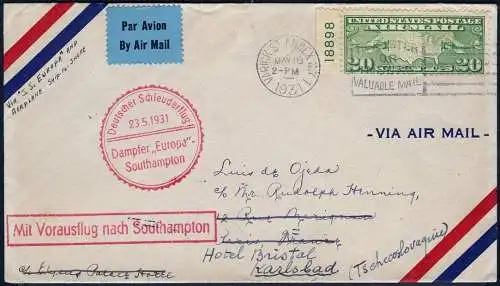 Par Avion
By Air Mail
VIA "S.S. EUROPA" AND
AEROPLANE, SHIP-TO-SHORE
VARICK ST. ANNEX
MAY 18
2-PM
1931
18898
UNITED STATES POSTAGE
AIR MAIL
20 20
VALUABLE MAIL
Deutscher Schleuderflug
23.5.1931
Dampfer „Europa"-
Southampton
-VIA AIR MAIL-
Luis de Ojeda
c/o Mr. Rudolph Henning,
12 Rue
Mit Vorausflug nach Southampton
Hotel Bristol
Karlsbad
(Tschecoslovaquie)
c/o Palace Hotel